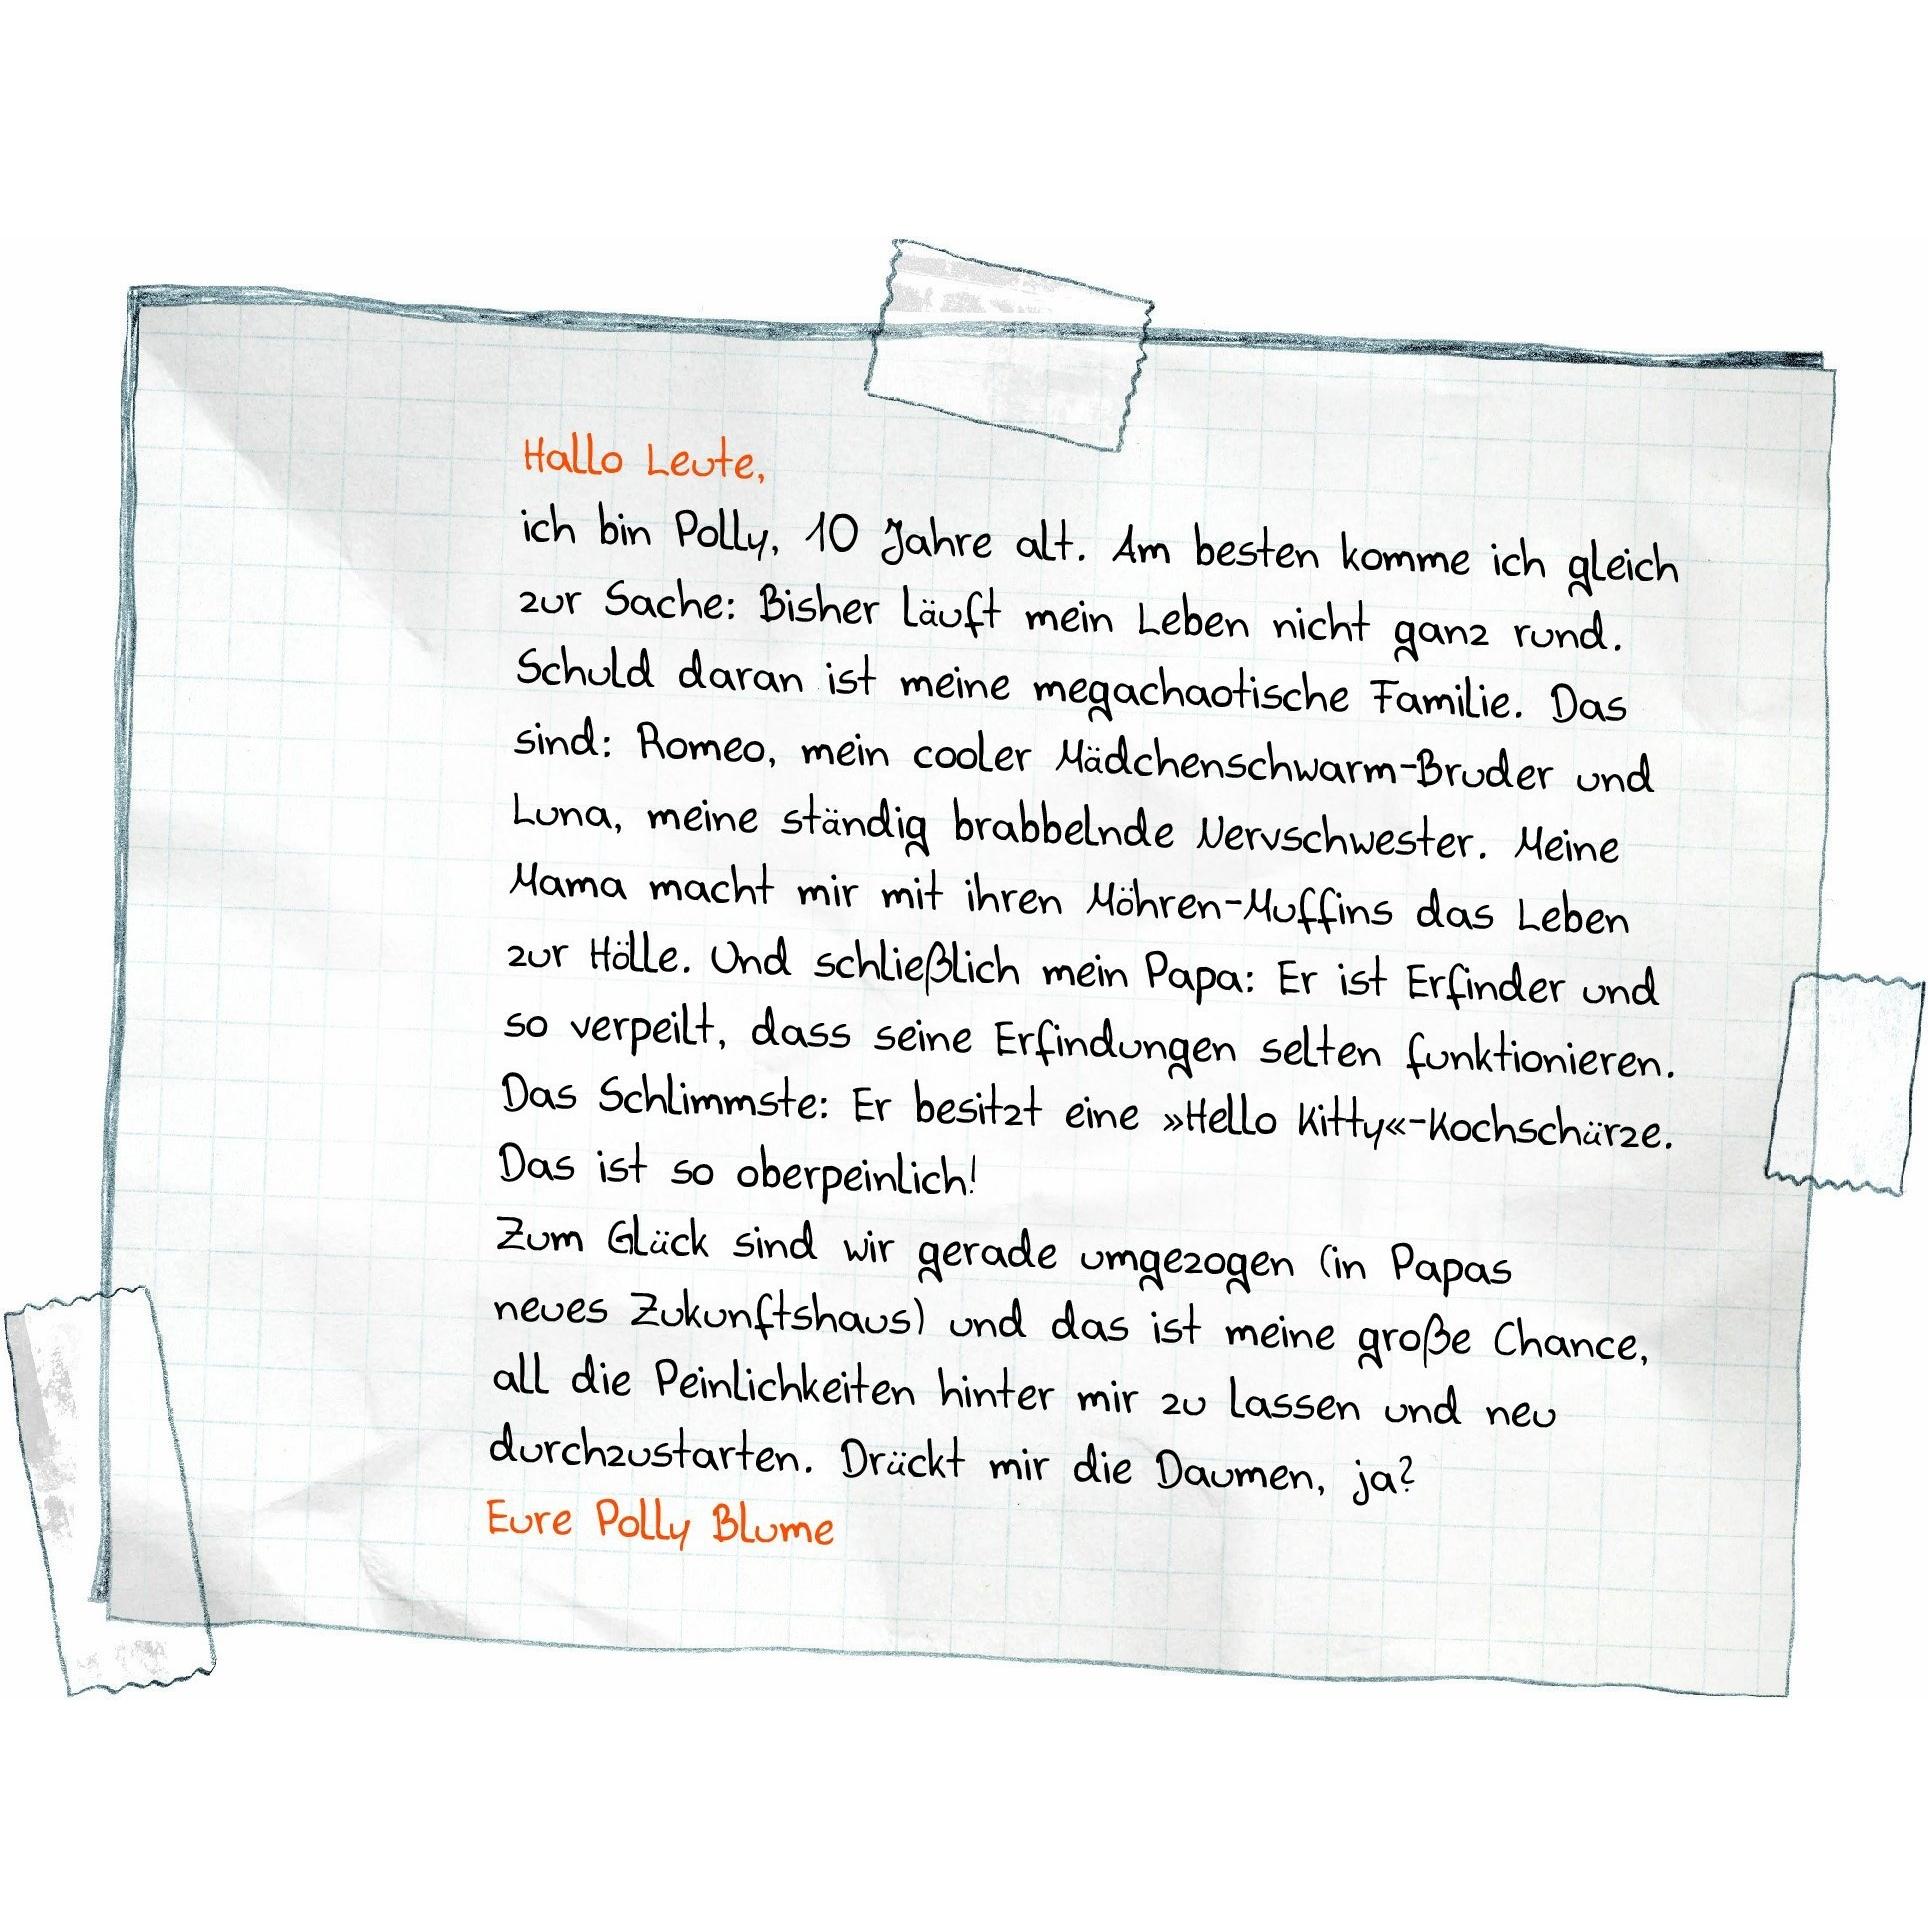 Hallo Leute,
ich bin Polly, 10 Jahre alt. Am besten komme ich gleich
zur Sache: Bisher läuft mein Leben nicht ganz rund.
Schuld daran ist meine megachaotische Familie. Das
sind: Romeo, mein cooler Mädchenschwarm-Bruder und
Luna, meine ständig brabbelnde Nervschwester. Meine
Mama macht mir mit ihren Möhren-Muffins das Leben
zur Hölle. Und schließlich mein Papa: Er ist Erfinder und
so verpeilt, dass seine Erfindungen selten funktionieren.
Das Schlimmste: Er besitzt eine »Hello Kitty«-Kochschürze.
Das ist so oberpeinlich!
Zum Glück sind wir gerade umgezogen (in Papas
neues Zukunftshaus) und das ist meine große Chance,
all die Peinlichkeiten hinter mir zu lassen und neu
durchzustarten. Drückt mir die Daumen, ja?
Eure Polly Blume